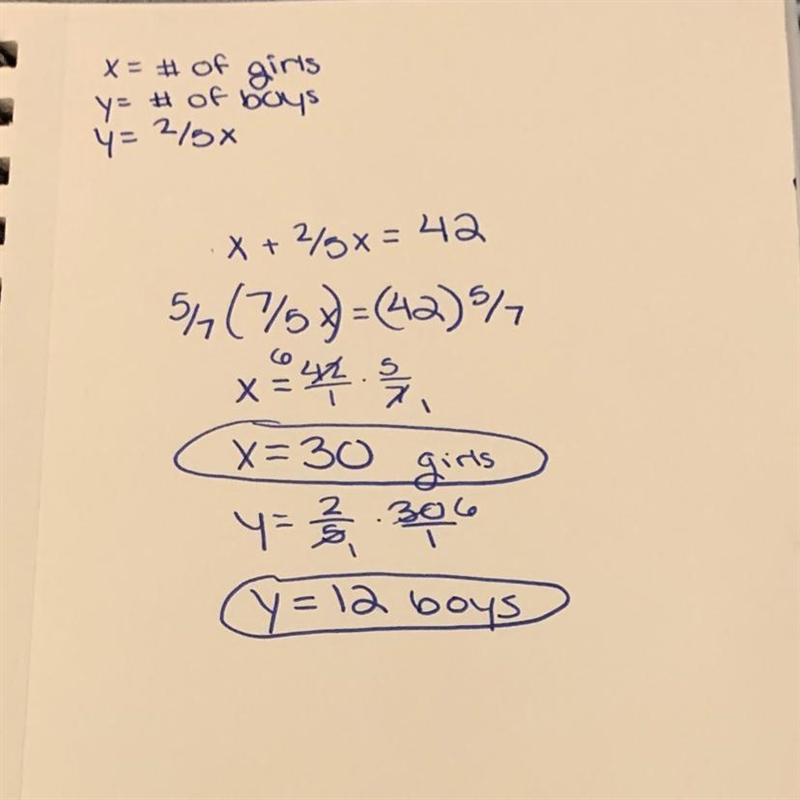 x = # of girls
y = # of boys
y = 2/5x
x + 2/5x = 42
5/7 (7/5 x) = (42) 5/7
x = 42/1 · 5/7 6 1
x = 30 girls
y = 2/5 · 30/1 1 6
y = 12 boys